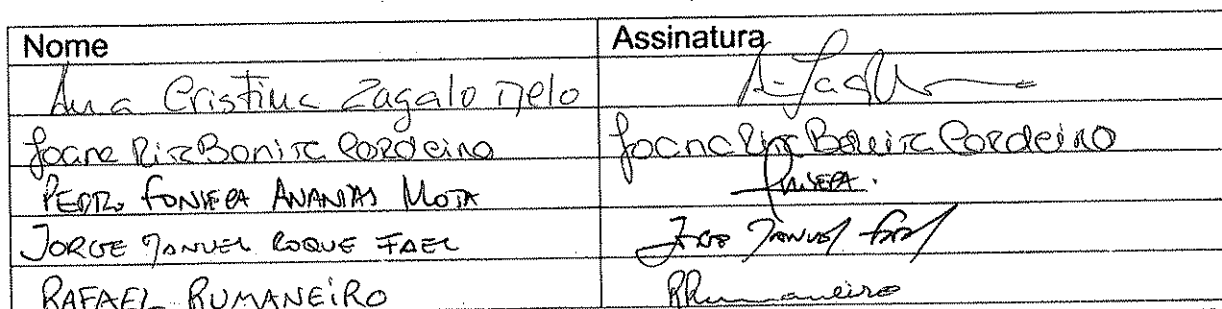 Nome Assinatura
Ana Cristina Zagalo Melo
Joana Rita Bonita Cordeiro Joana Rita Bonita Cordeiro
PEDRO FONSECA ANANIAS MOTA FONSECA.
JORGE MANUEL ROQUE FAEL Jorge Manuel Fael
RAFAEL RUMANEIRO RRumaneiro